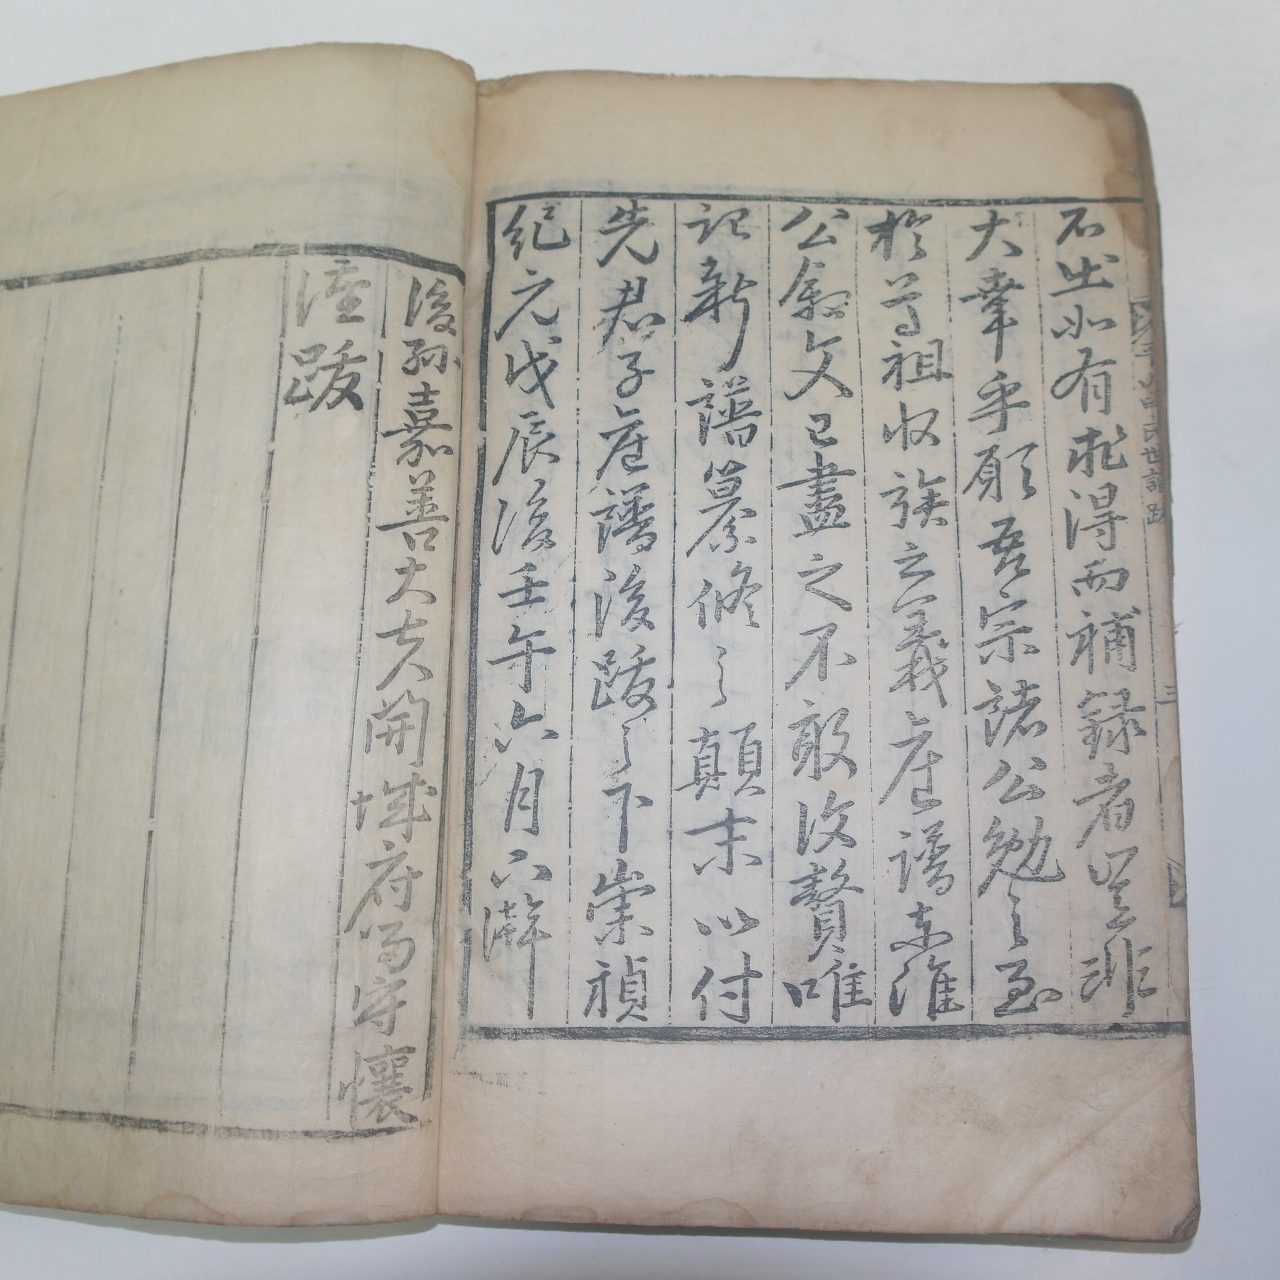 石出如有推得而補錄者豈非
大幸乎願吾宗諸公勉之至
於尊祖收族之義座譜來淮
公叙文已盡之不敢復贅唯
記新譜纂修之顚末以付
先君子座譜後跋之下崇禎
紀元戊辰後壬午六月下澣
後孫嘉善大夫開城府留守懷
謹跋
申氏世譜跋
三